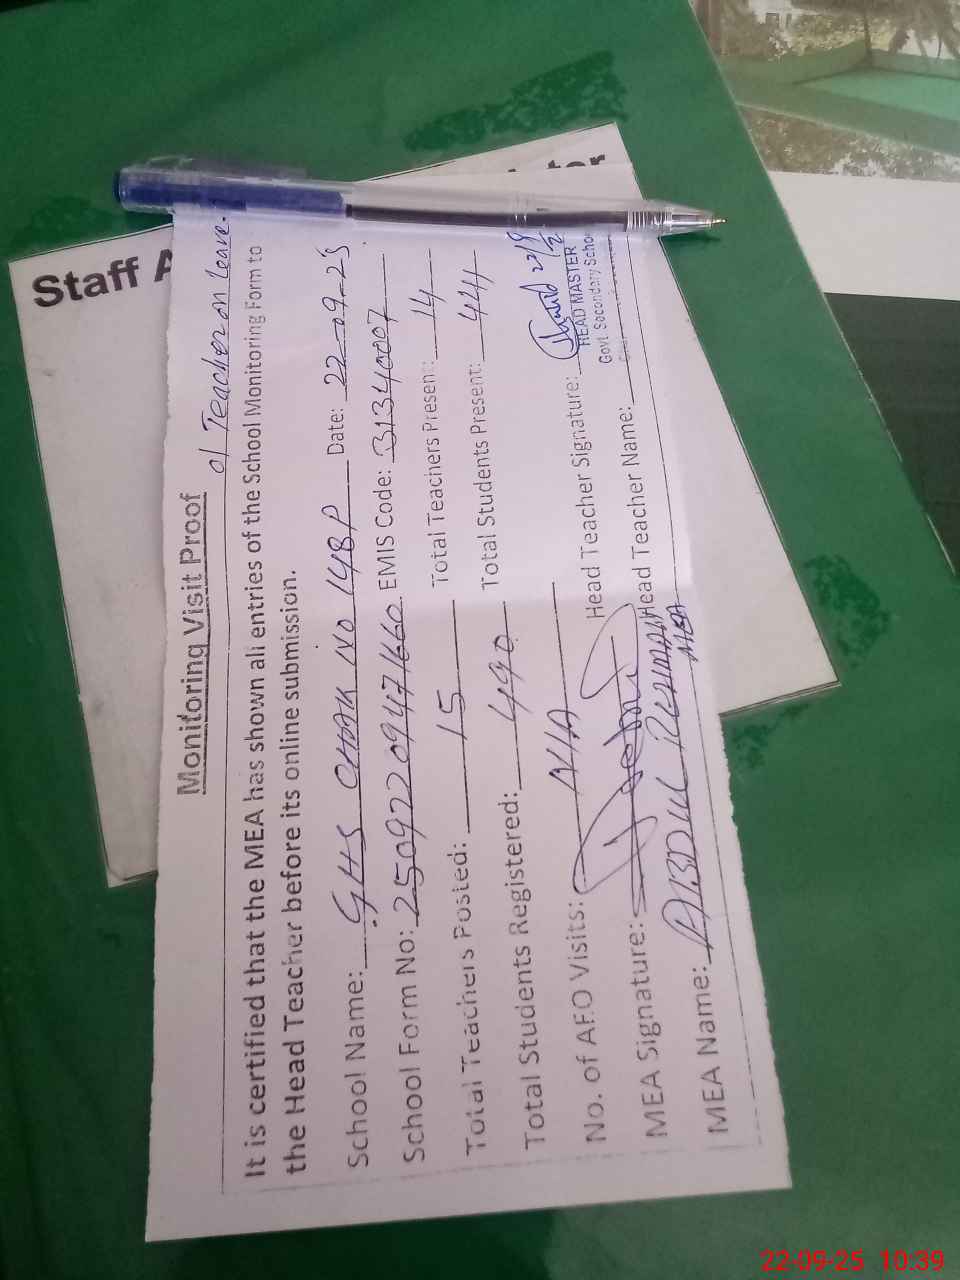 Staff A
01 Teacher on leave.
Monitoring Visit Proof
It is certified that the MEA has shown all entries of the School Monitoring Form to
the Head Teacher before its online submission.
School Name: GHS CHAK NO 148P Date: 22-09-25
School Form No: 25092209471660 EMIS Code: 31340007
Total Teachers Posted: 15 Total Teachers Present: 14
Total Students Registered: 490 Total Students Present: 444
No. of AEO Visits: N/A Head Teacher Signature:
HEAD MASTER
Govt. Secondary Schoo
MEA Signature: Head Teacher Name:
MEA Name: ABDUL REHMAN
MEA
22-09-25 10:39